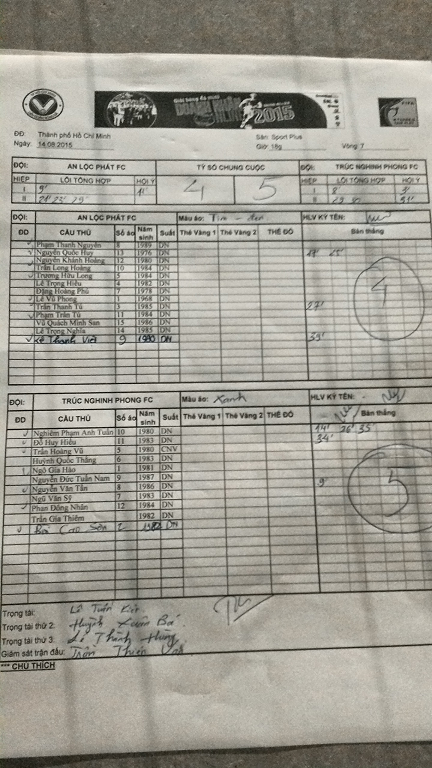 2015
ĐĐ: Thành phố Hồ Chí Minh Sân: Sport Plus
Ngày: 14.08.2015 Giờ: 18g Vòng 7
ĐỘI: AN LỘC PHÁT FC TỶ SỐ CHUNG CUỘC ĐỘI: TRÚC NGHINH PHONG FC
HIỆP LỖI TỔNG HỢP HỘI Ý 4 5 HIỆP LỖI TỔNG HỢP HỘI Ý
I 9' I 8'
II II
ĐỘI: AN LỘC PHÁT FC Màu áo: Tím - đen HLV KÝ TÊN:
ĐD CẦU THỦ Số áo Năm sinh Suất Thẻ Vàng 1 Thẻ Vàng 2 THẺ ĐỎ Bàn thắng
Phạm Thanh Nguyên 8 1989 DN
Nguyễn Quốc Huy 13 1976 DN
Nguyễn Khánh Hoàng 12 1980 DN
Trần Long Hoàng 10 1984 DN
Trương Hữu Long 5 1984 DN
Lê Trọng Hiếu 4 1982 DN
Đặng Hoàng Phú 7 1978 DN
Lê Vũ Phong 1 1968 DN
Trần Thanh Tú 3 1985 DN 27'
Phạm Trần Tú 11 1984 DN
Vũ Quách Minh San 15 1986 DN
Lê Trọng Nghĩa 14 1985 DN
Lê Thanh Việt 9 1980 DN 39'
4
ĐỘI: TRÚC NGHINH PHONG FC Màu áo: Xanh HLV KÝ TÊN:
ĐD CẦU THỦ Số áo Năm sinh Suất Thẻ Vàng 1 Thẻ Vàng 2 THẺ ĐỎ Bàn thắng
Nghiêm Phạm Anh Tuấn 10 1980 DN 14' 26' 35'
Đỗ Huy Hiếu 11 1983 DN 34'
Trần Hoàng Vũ 5 1980 CNV
Huỳnh Quốc Thắng 6 1983 DN
Ngô Gia Hào 1 1981 DN
Nguyễn Đức Tuấn Nam 9 1987 DN 9'
Nguyễn Văn Tấn 8 1986 DN
Ngũ Văn Sỹ 7 1983 DN
Phan Đồng Nhân 12 1984 DN
Trần Gia Thiêm 1982 DN
Bá Cao Sơn 2 1982 DN
5
Trọng tài: Lê Tuấn
Trọng tài thứ 2: Huỳnh Xuân Bá
Trọng tài thứ 3: Lê Thành Hưng
Giám sát trận đấu: Trần Thiên
*** CHÚ THÍCH